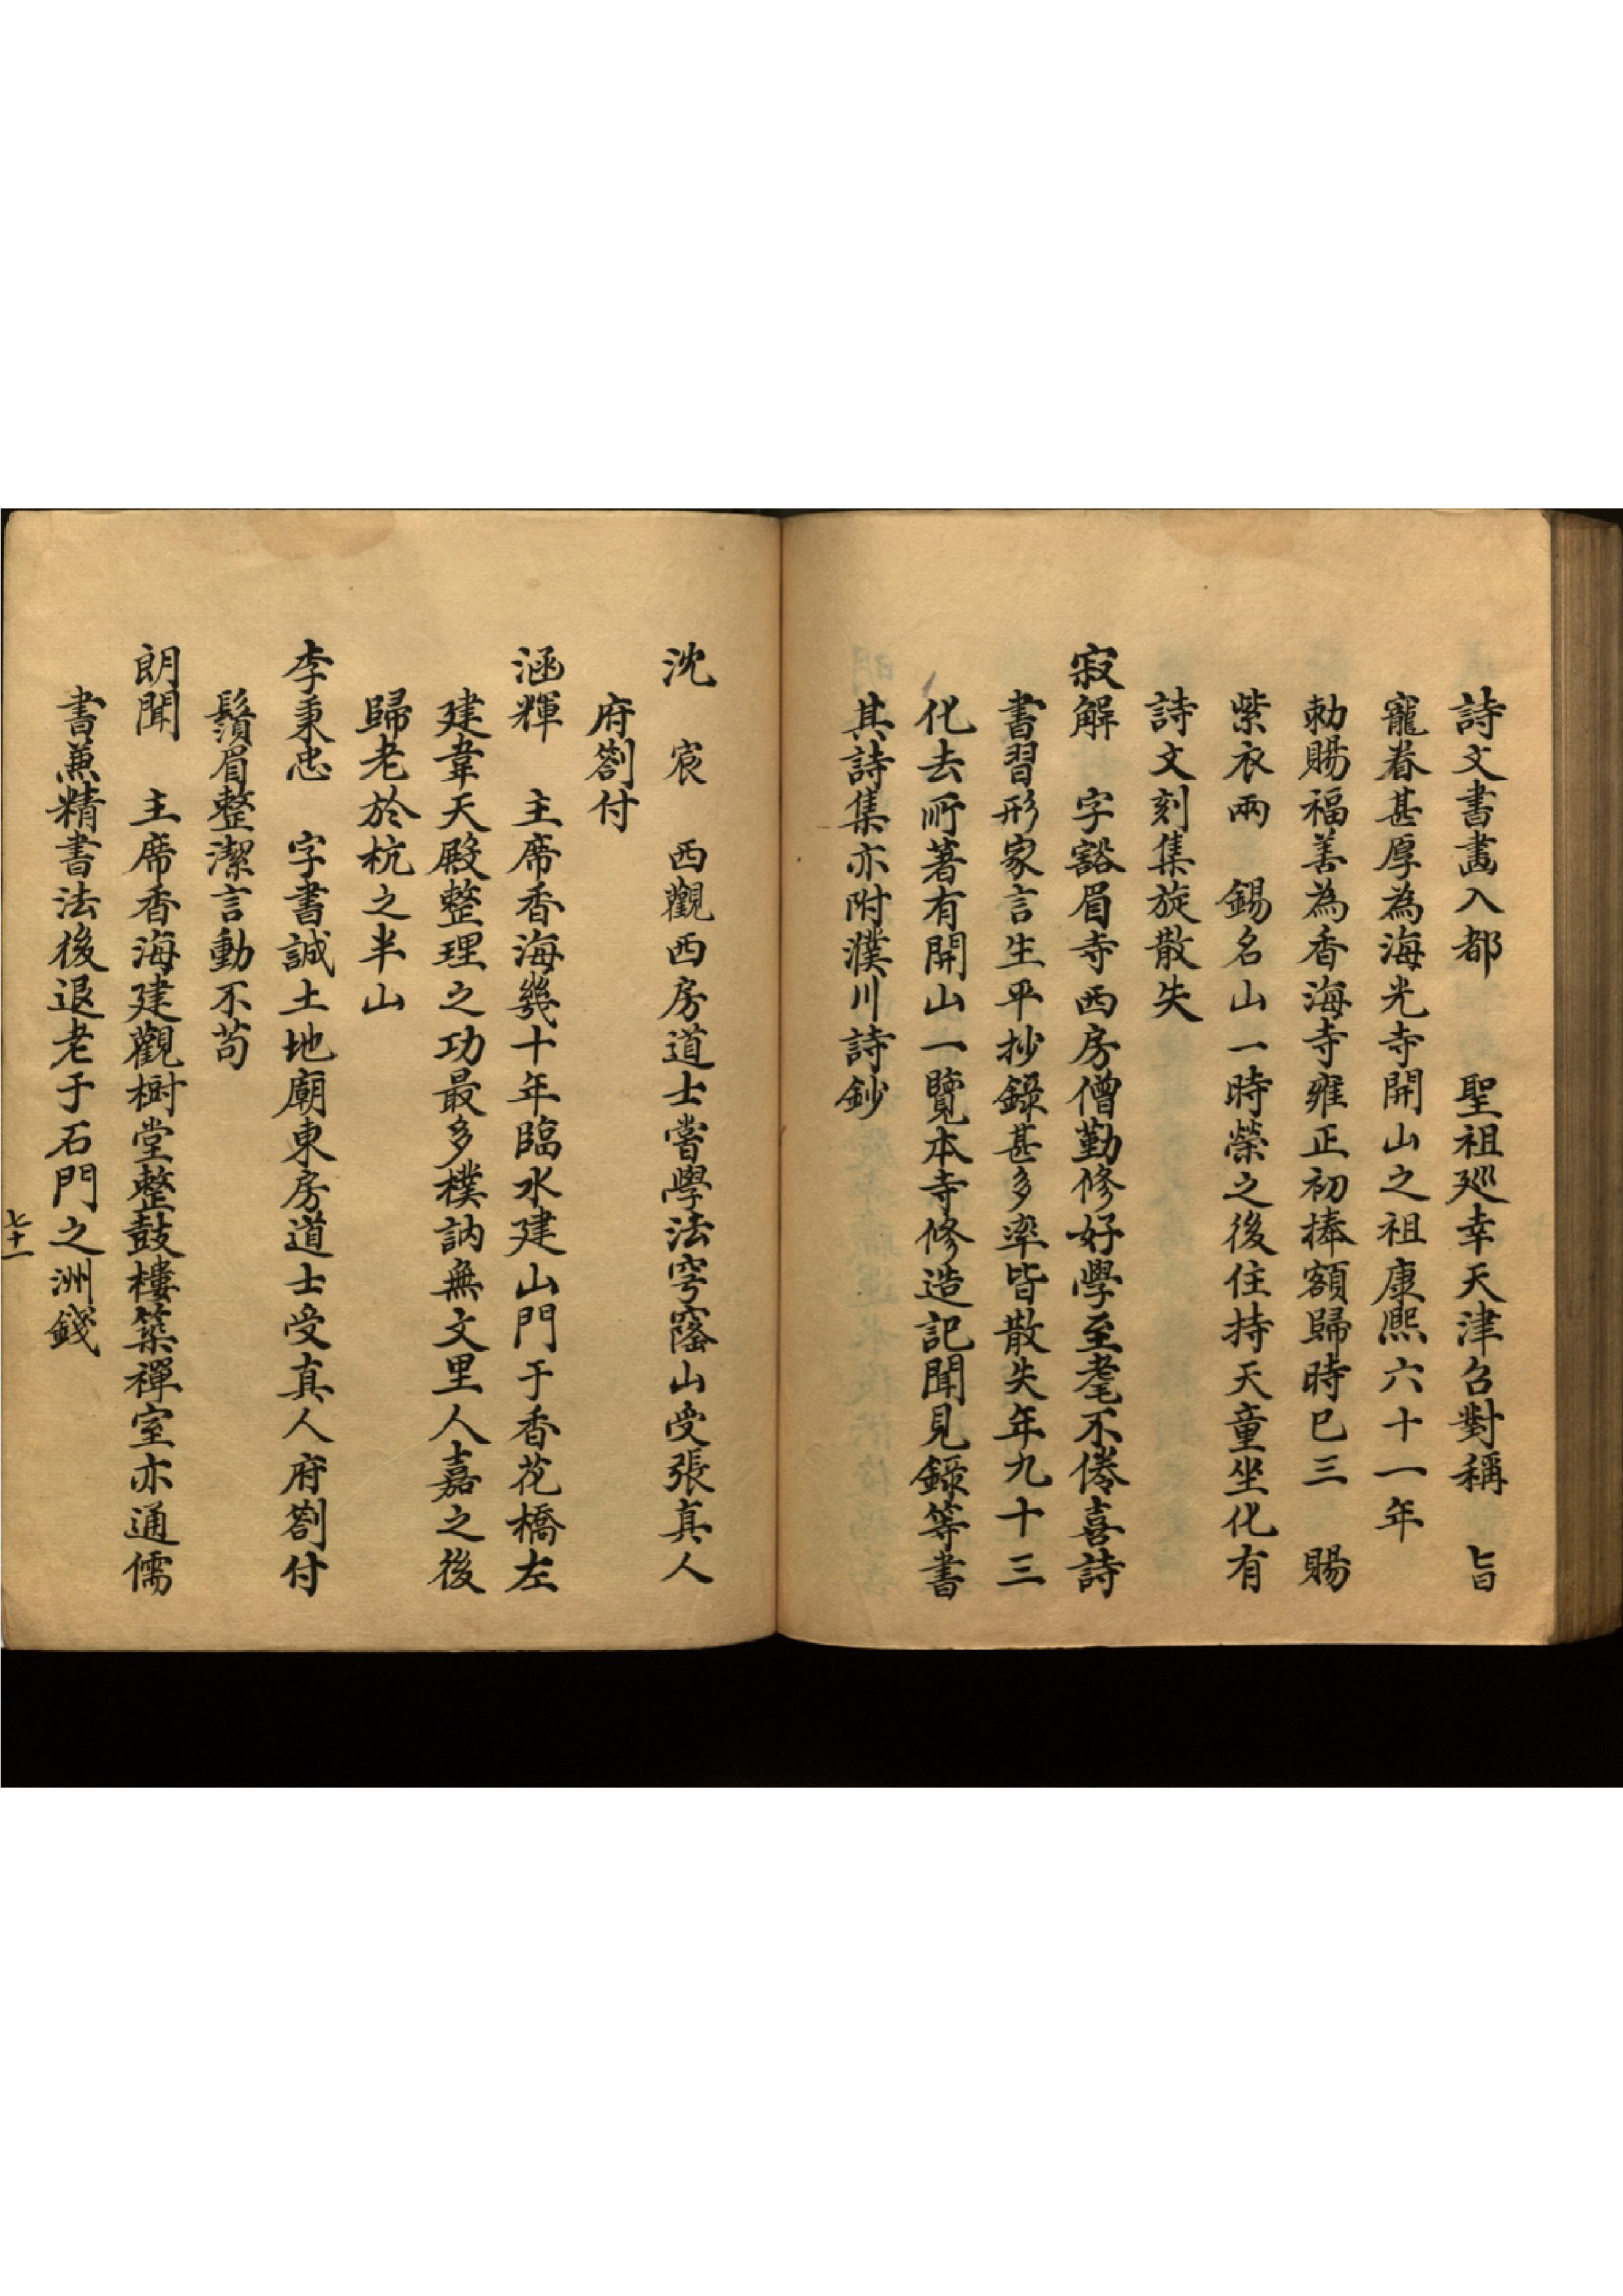 詩文書畫入都　聖祖廵幸天津召對稱　旨
寵眷甚厚為海光寺開山之祖康熙六十一年
勅賜福善為香海寺雍正初捧額歸時已三　賜
紫衣兩　錫名山一時榮之後住持天童坐化有
詩文刻集旋散失
寂解　字豁眉寺西房僧勤修好學至耄不倦喜詩
書習形家言生平抄錄甚多率皆散失年九十三
化去所著有開山一覽本寺修造記聞見錄等書
其詩集亦附濮川詩鈔
沈　宸　西觀西房道士嘗學法穹窿山受張真人
府劄付
涵輝　主席香海幾十年臨水建山門于香花橋左
建韋天殿整理之功最多樸訥無文里人嘉之後
歸老於杭之半山
李秉忠　字書誠土地廟東房道士受真人府劄付
鬚眉整潔言動不苟
朗聞　主席香海建觀樹堂整鼓樓築禪室亦通儒
書兼精書法後退老于石門之洲錢
七十一